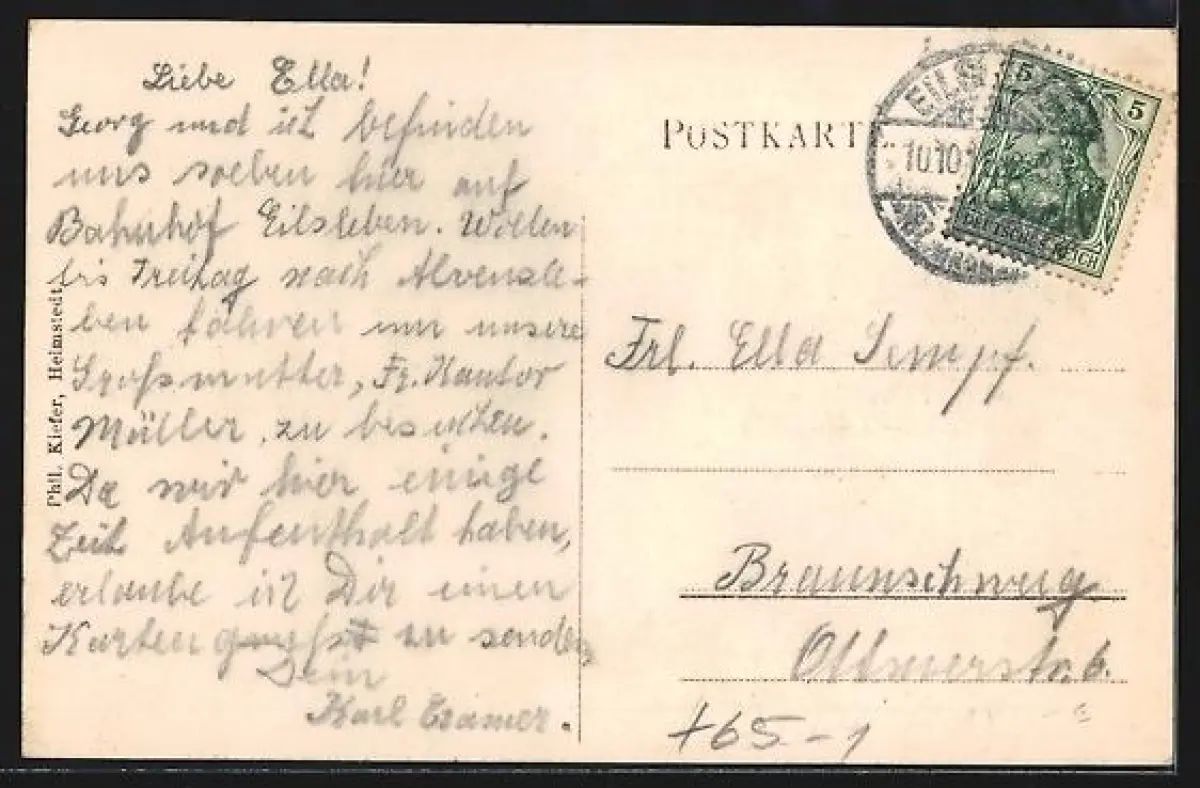 Liebe Ella!
Georg und ich befinden
uns soeben hier auf
Bahnhof Eilsleben. Wollen
bis Freitag nach Alvensle-
ben fahren um unsere
Grossmutter, Fr. Kantor
Müller, zu besuchen.
Da wir hier einige
Zeit Aufenthalt haben,
erlaube ich Dir einen
Kartengruss zu senden,
Dein
Karl Cramer.
Phil. Kiefer, Helmstedt
POSTKARTE
EILSL
10.10.1
5 5
DEUTSCHES REICH
Frl. Ella Sempf.
Braunschweig
Ottmerstr. 6.
+65-1